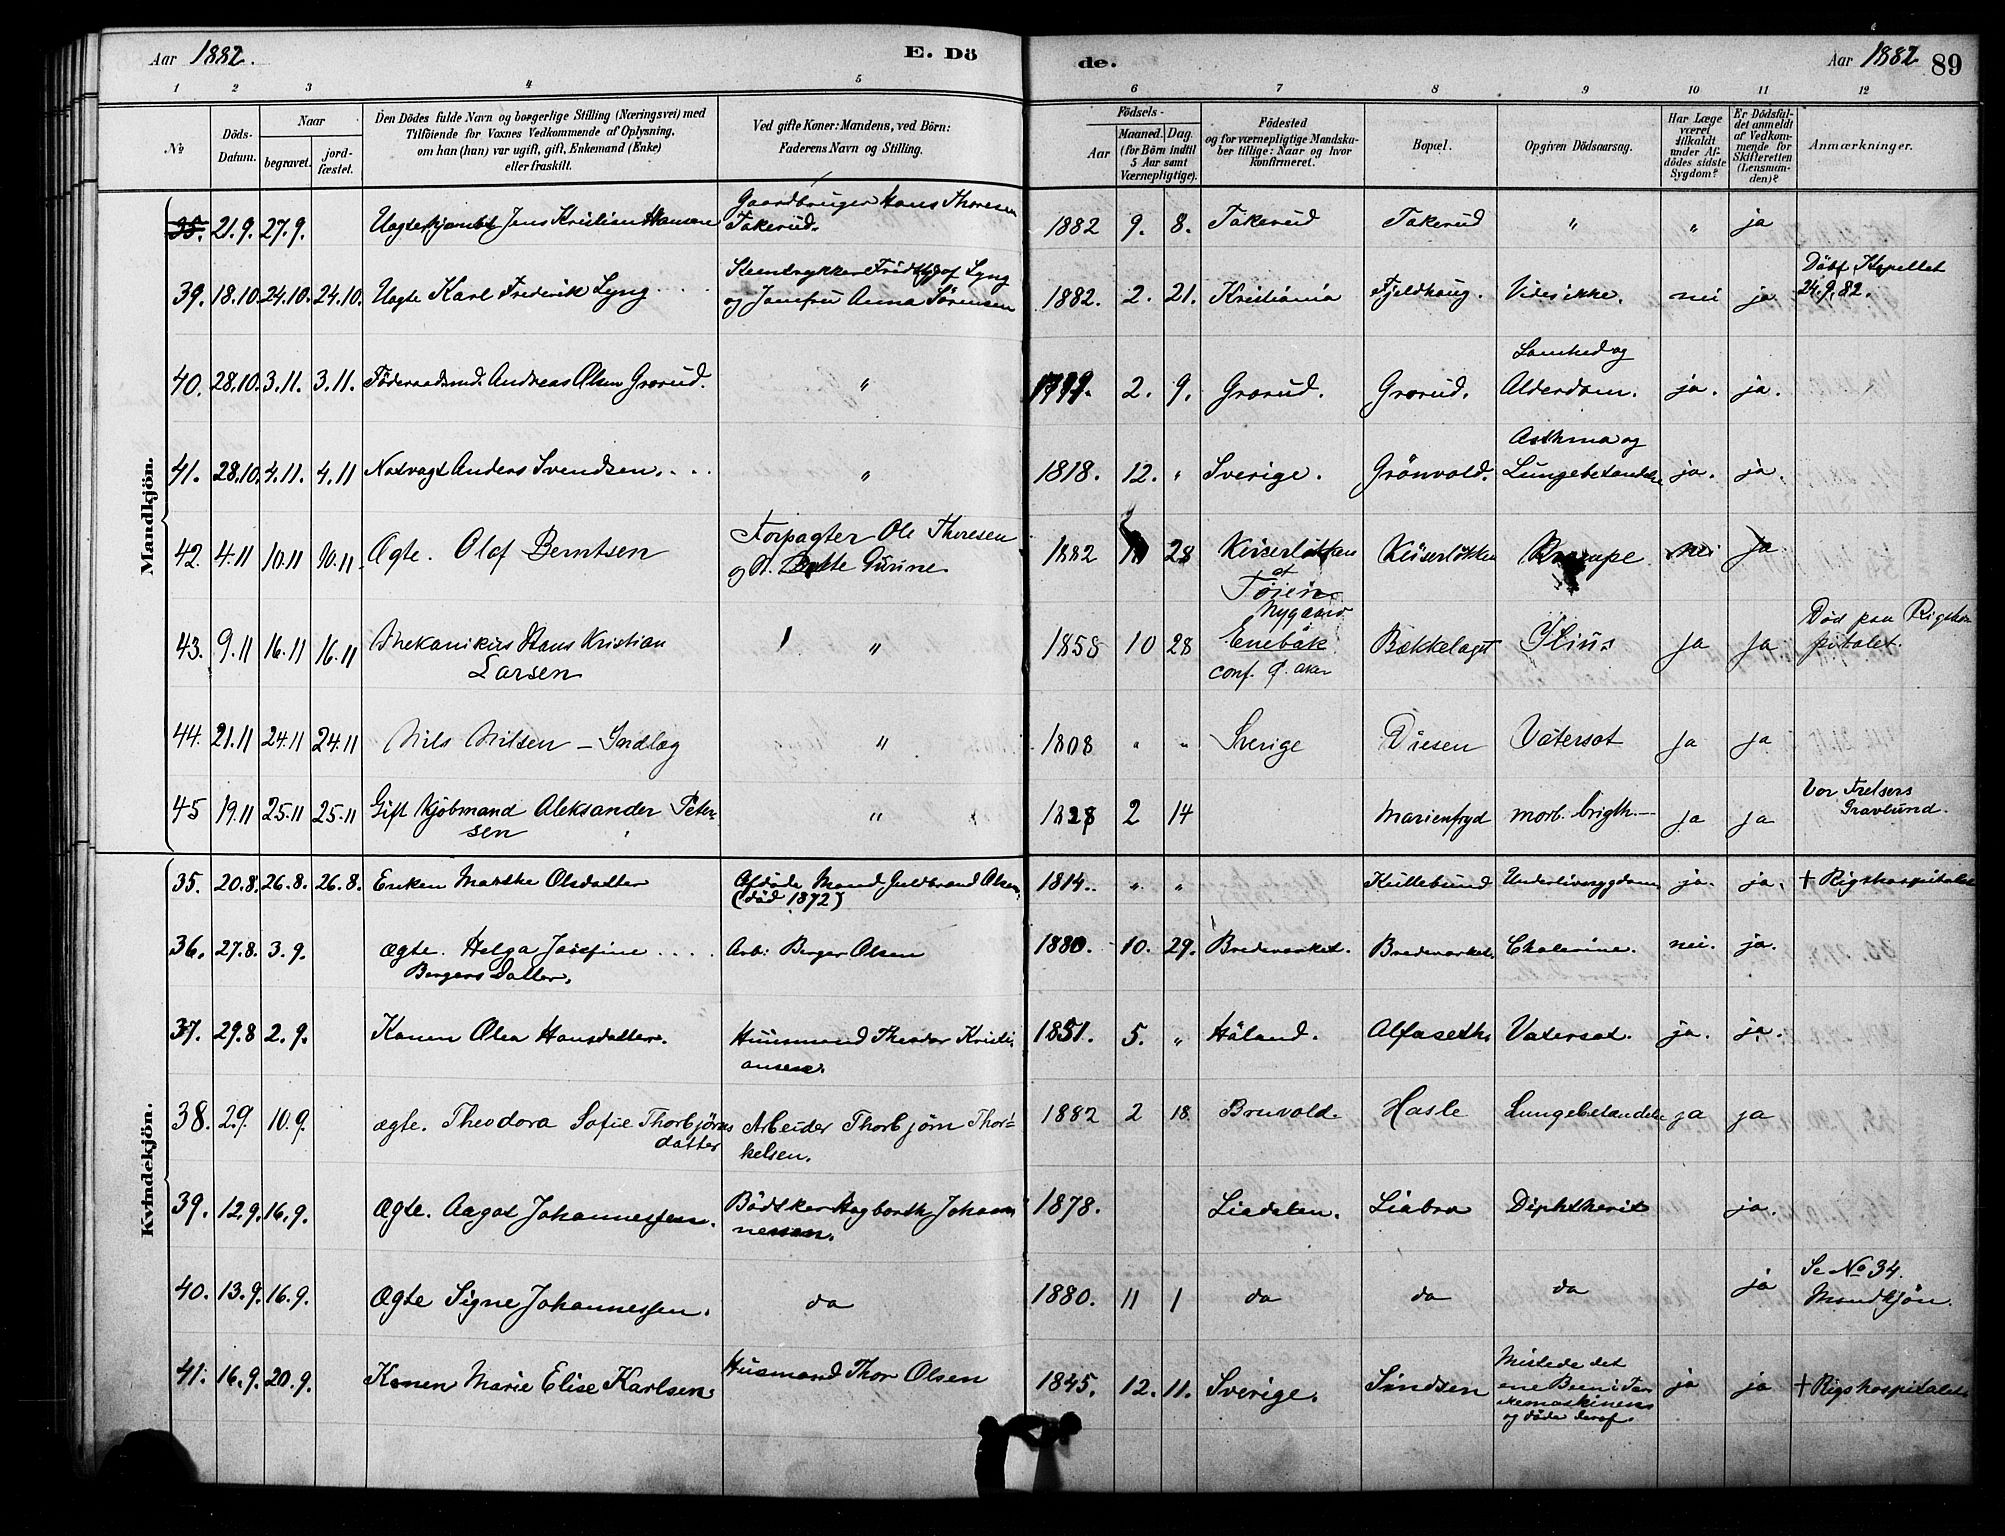 Aar 1882. E. Dö de. Aar 1882 89
1 2 3 4 5 6 7 8 9 10 11 12
No
Döds-Datum.
Naar
begravet. jord-fæstet.
Den Dödes fulde Navn og borgerlige Stilling (Næringsvei) med
Tilföiende for Voxnes Vedkommende af Oplysning,
om han (hun) var ugift, gift, Enkemand (Enke)
eller fraskilt.
Ved gifte Koner: Mandens, ved Börn:
Faderens Navn og Stilling.
Födsels-
Aar Maaned. Dag.
(for Börn indtil
5 Aar samt
Værnepligtige).
Födested
og for værnepligtige Mandska-
ber tillige: Naar og hvor
Konfirmeret.
Bopæl.
Opgiven Dödsaarsag.
Har Læge
været
tilkaldt
under Af-
dödes sidste
Sygdom?
Er Dödsfal-
det anmeldt
af Vedkom-
mende for
Skifteretten
(Lensman-
den)?
Anmærkninger.
Mandkjön.
35. 21.9. 27.9. Uægte Jens Kristian Hansen Gaardbruger Hans Thoresen
Takerud. 1882 9. 8. Takerud Takerud " " ja
39. 18.10. 24.10. 24.10. Uægte Karl Frederik Lyng Steentrykker Fridthjof Lyng
og Jomfru Anna Sørensen 1882. 2. 21. Kristiania Fjeldhaug. Vides ikke. nei ja Döbt Kapellet
24.9.82.
40. 28.10. 3.11. 3.11. Föderaadsmd. Andreas Olsen Grorud. " 1799. 2. 9. Grorud. Grorud. Lamhed og
Alderdom. ja. ja.
41. 28.10. 4.11. 4.11 Natvagt Anders Svendsen. " 1818. 12. " Sverige. Grönvold. Asthma og
Lungebetændelse ja. ja.
42. 4.11 10.11 10.11 Ægte. Olaf Berntsen Forpagter Ole Thoresen
og H. Dorthe Gurine. 1882 28 Keiserløkken
af
Tøien Keiserløkken nei ja
43. 9.11 16.11 16.11 Mekanikus Hans Kristian
Larsen " 1858 10 28 Nygaard
Enebak
conf. Ø. Aker Bækkelaget Ilius ja ja Död paa Rigshos
pitalet.
44. 21.11 24.11 24.11 Nils Nilsen – Indlag " 1808 " " Sverige Diesen Vatersot ja ja
45 19.11 25.11 25.11 Gift Kjöbmand Aleksander Peter-
sen " 1828 2 14 Marienfryd morb. brigth. ja ja Vor Frelsers
Gravlund.
Kvindekjön.
35. 20.8. 26.8. 26.8. Enken Marthe Olsdatter Afdøde Mand Guldbrand Olsen.
(död 1872) 1814. " " Kullebund Underlivssygdom ja. ja. + Rigshospitalet
36. 27.8. 3.9. ægte. Helga Josefine
Bergers Datter. Arb: Berger Olsen 1880 10. 29. Bredevarket. Bredevarket. Cholerine. nei. ja.
37. 29.8 2.9. Konen Olea Hansdatter. Huusmand Theodor Kristi-
ansen. 1851. 5. " Höland. Alfaseth. Vatersot. ja. ja.
38. 2.9. 10.9. ægte. Theodora Sofie Thorbjörns
datter Arbeider Thorbjörn Thor-
kelsen. 1882 2 18. Bruvold. Hasle Lungebetændelse ja ja
39. 12.9. 16.9. Ægte. Aagot Johannessen. Bödsker Hagbarth Johan-
nessen. 1878. Liadalen. Liabro Diphtherit ja.
40. 13.9. 16.9. Ægte Signe Johannessen. do 1880. 11 1 do do do ja Se No 34.
Mandkjön.
41. 16.9. 20.9. Konen Marie Elise Karlsen. Husmand Thor Olsen 1845. 12. 11. Sverige. Sindsen Mistede det
ene Been i Tær
skemaskinen
og döde deraf. ja ja + Rigshospitalet